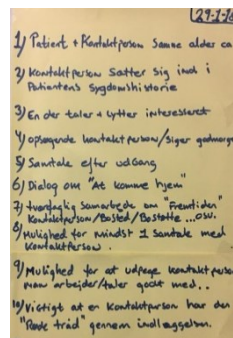 29-1-16
1) Patient + Kontaktperson samme alder ca
2) Kontaktperson sætter sig ind i
Patientens sygdomshistorie
3) En der taler + lytter interesseret
4) opsøgende kontaktperson/siger godmorgen
5) Samtale efter udgang
6) Dialog om "At komme hjem"
7) tværfaglig samarbejde om "Fremtiden"
Kontaktperson/Bosted/Bostøtte ...osv.
8) Mulighed for mindst 1 samtale med
kontaktperson.
9) Mulighed for at udpege kontaktperson
man arbejder/taler godt med..
10) Vigtigt at en kontaktperson har den
"Røde tråd" gennem indlæggelsen.